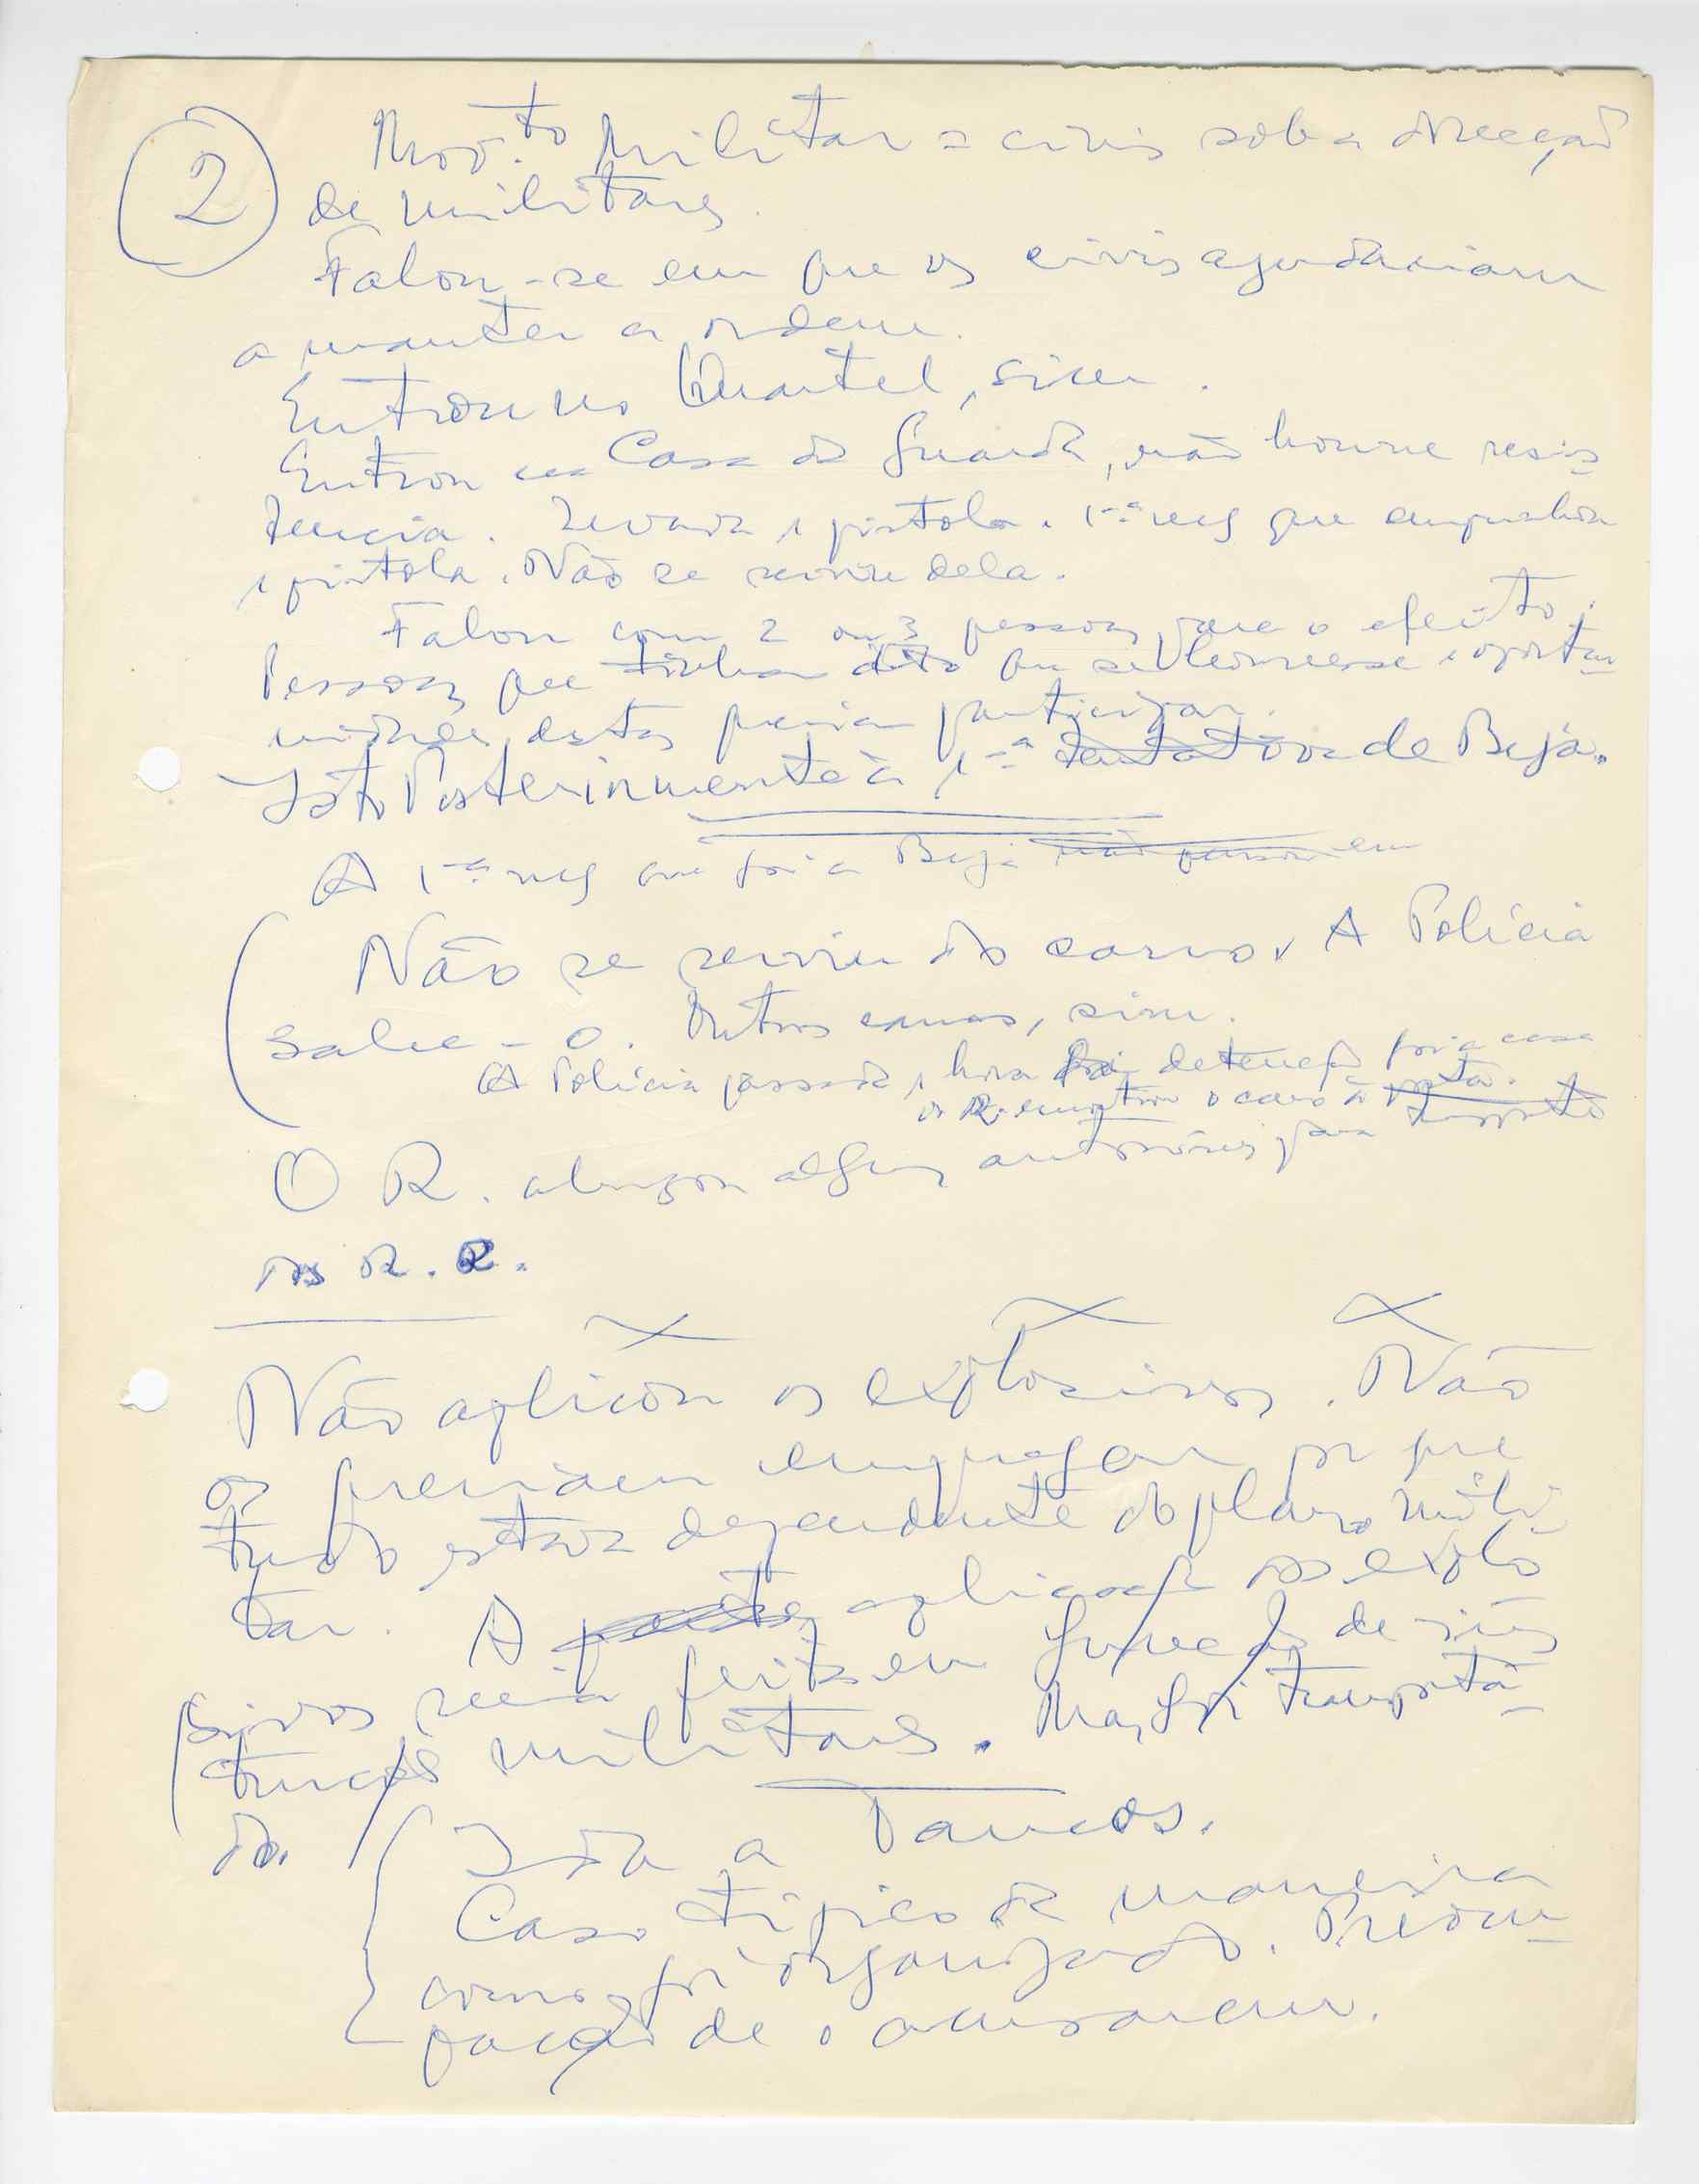 2
Mov.to Militar = civis sob a direcção
de militares.
Falou-se em que os civis ajudariam
a manter a ordem.
Entrou no Quartel, sim.
Entrou na Casa da Guarda, não houve resis-
tencia. Levava 1 pistola. 1.ª vez que empunhou
1 pistola. Não se serviu dela.
Falou com 2 ou 3 pessoas para o efeito.
Pessoas que tinham dito que se houvesse oportu-
nidade destas queriam participar.
Isto Posteriormente à 1.ª tentativa de Beja.
A 1.ª vez que foi a Beja não passou em
Não se serviu do carro. A Polícia
sabe-o. Outros carros, sim.
A Polícia passada 1 hora da detenção foi a casa
o R. encontrou o carro à porta.
O R. alugou alguns automóveis para transporte
dos R. R.
Não aplicou os explosivos. Não
os queriam empregar por que
tudo estava dependente do plano mili-
tar. A parte aplicação dos explo
sivos seria feita em função de ins
truções militares. Mas foi transporta-
do.
Ida a Tancos.
Caso típico da maneira
como foi organizado. Preocu-
pação de o acusarem.